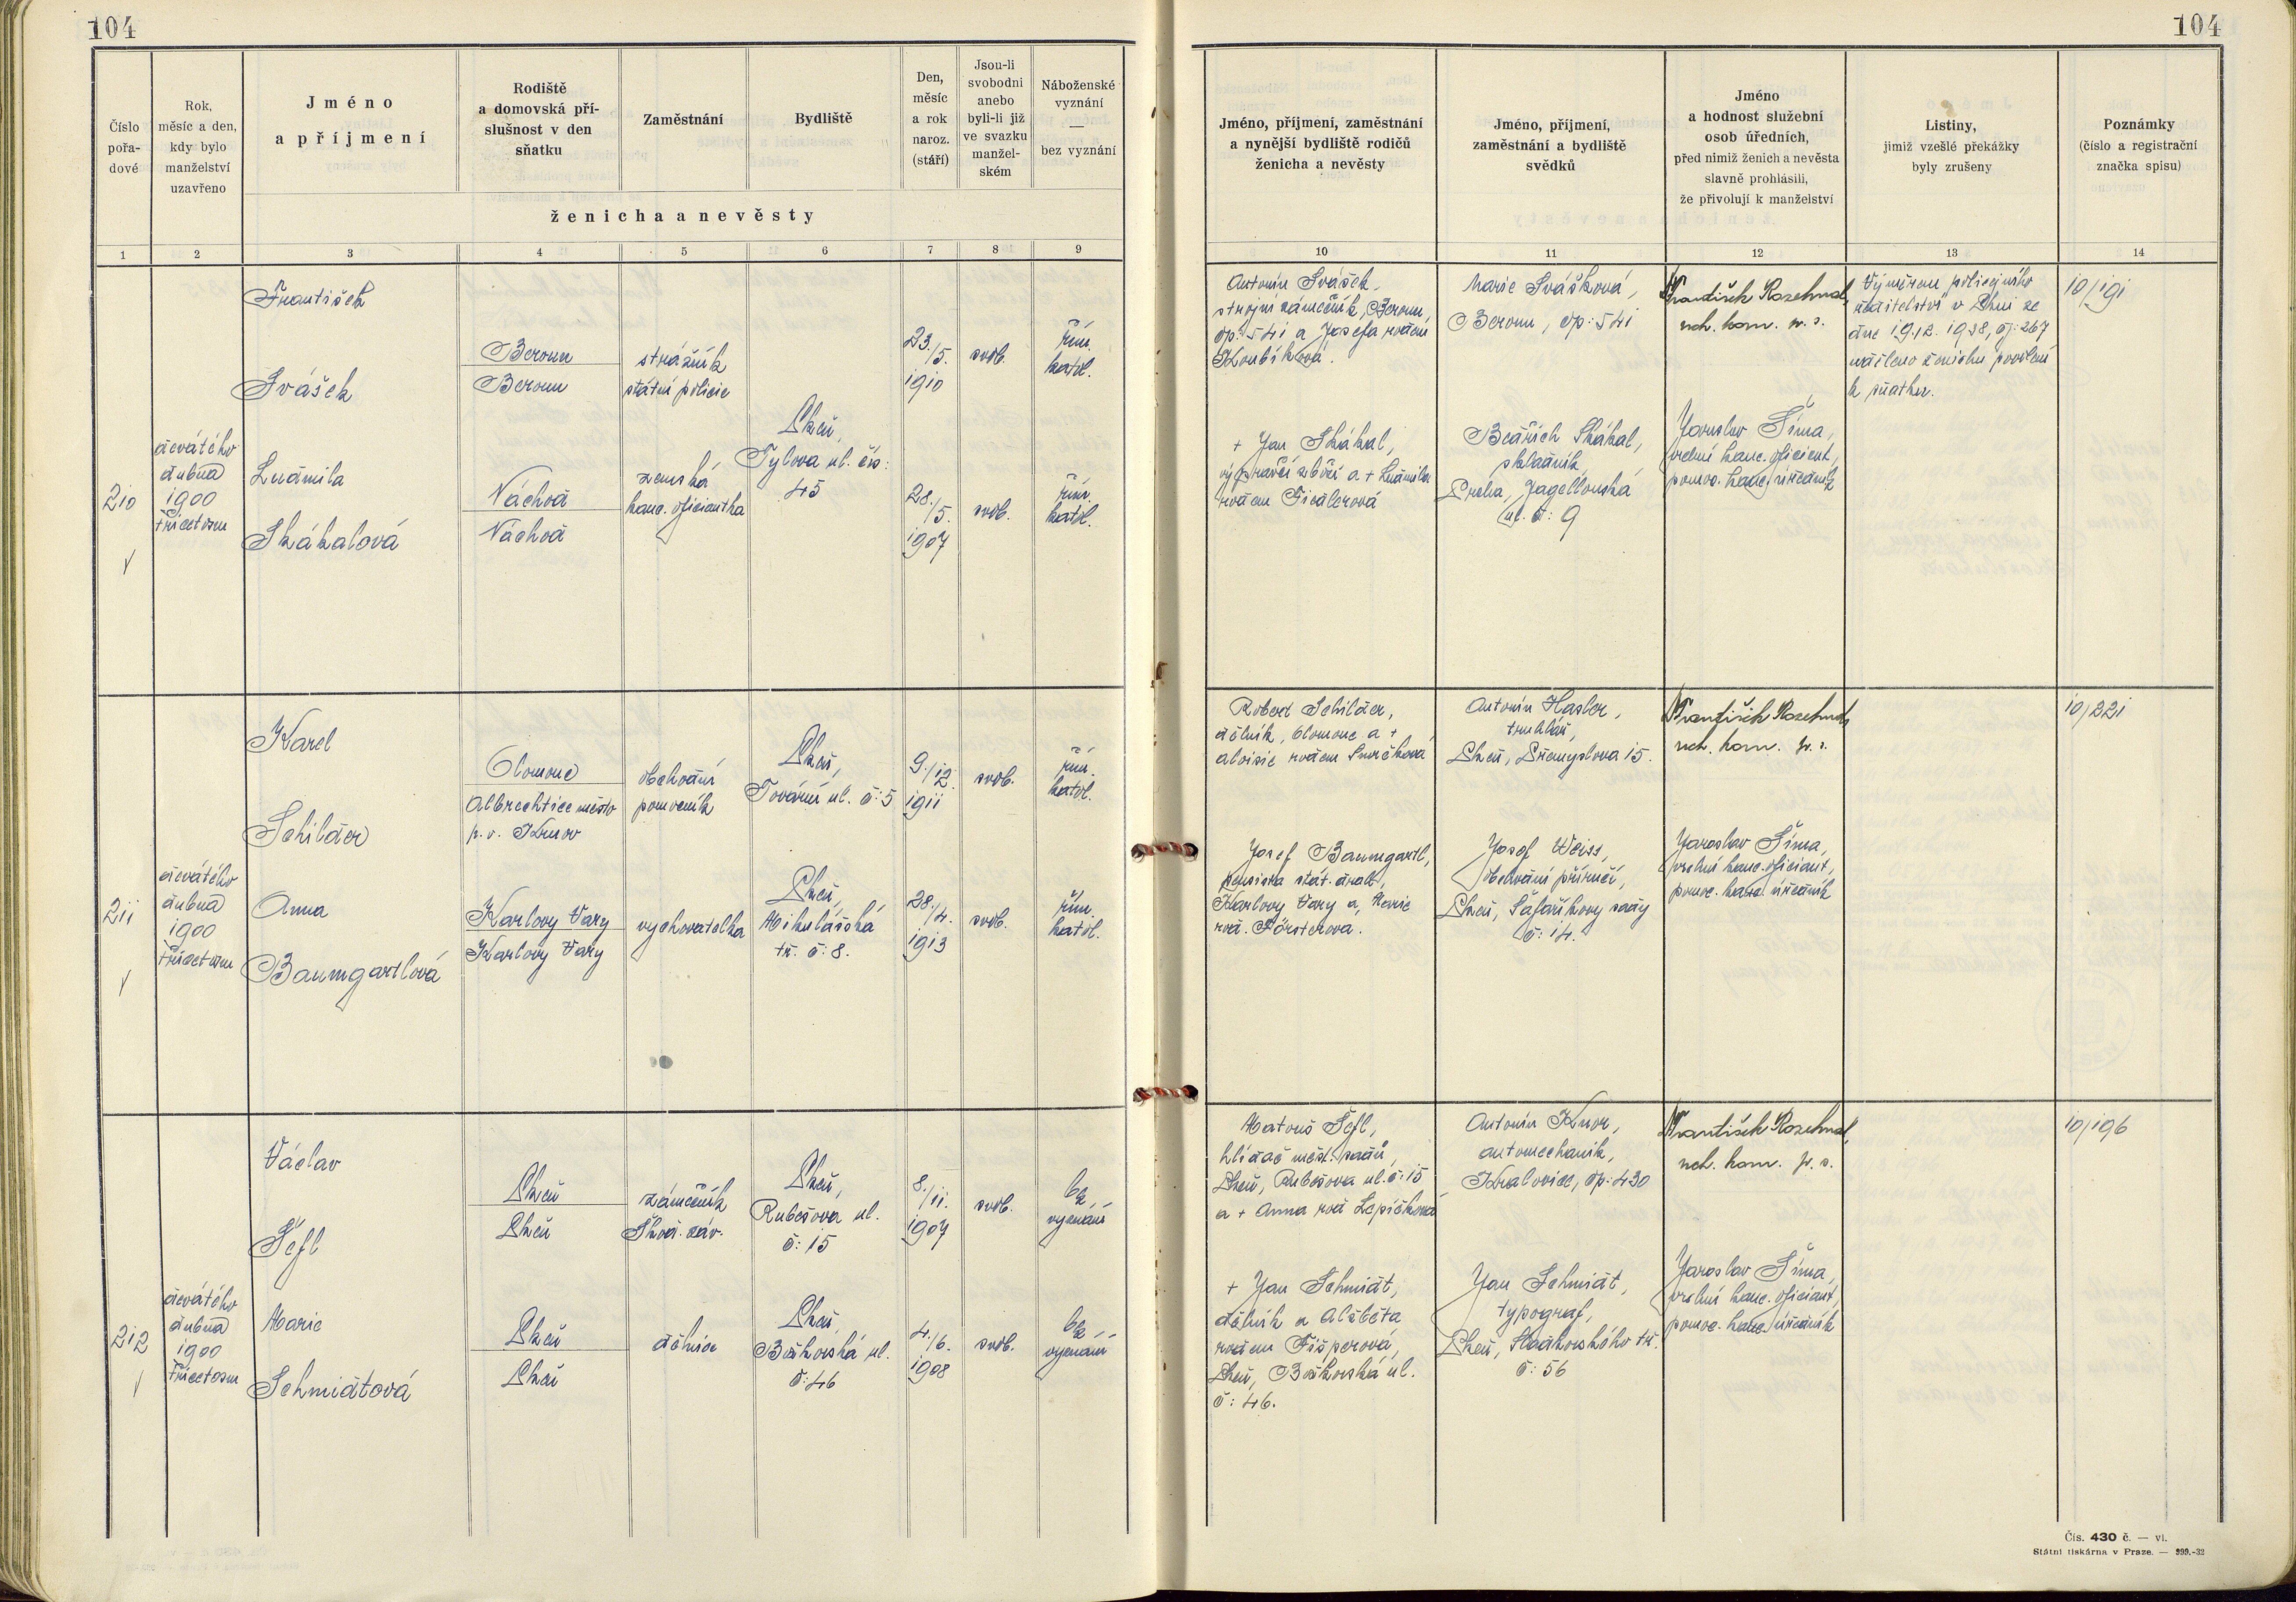 104
104
Číslo
pořa-
dové
Rok,
měsíc a den,
kdy bylo
manželství
uzavřeno
Jméno
a příjmení
Rodiště
a domovská pří-
slušnost v den
sňatku
Zaměstnání
Bydliště
Den,
měsíc
a rok
naroz.
(stáří)
Jsou-li
svobodni
anebo
byli-li již
ve svazku
manžel-
ském
Náboženské
vyznání
—
bez vyznání
ženicha a nevěsty
1 2 3 4 5 6 7 8 9
Jméno, příjmení, zaměstnání
a nynější bydliště rodičů
ženicha a nevěsty
Jméno, příjmení,
zaměstnání a bydliště
svědků
Jméno
a hodnost služební
osob úředních,
před nimiž ženich a nevěsta
slavně prohlásili,
že přivolují k manželství
Listiny,
jimiž vzešlé překážky
byly zrušeny
Poznámky
(číslo a registrační
značka spisu)
10 11 12 13 14
210
devátého
dubna
1900
třicetosm
František
Svášek
Beroun
Beroun
strážník
státní policie
23./5.
1910
svob.
řím.
katol.
Ludmila
Skákalová
Náchod
Náchod
zemská
kanc. oficiantka
Plzeň,
Tylova ul. čís:
45
28./5.
1907
svob.
řím.
katol.
Antonín Svášek,
strojní zámečník, Beroun,
čp: 541 a Josefa rodem
Koubíková.
+ Jan Skákal,
výpravčí zboží a + Ludmila
rodem Fiedlerová
Marie Svášková,
Beroun, čp: 541
Bedřich Skákal,
skladník,
Praha, Jagellonská
ul. č: 9
František Rozehnal,
rch. kom. v. s.
Jaroslav Šíma,
vrchní kanc. oficiant,
pomoc. kanc. úředník
Výměrem policejního
ředitelství v Plzni ze
dne 19.12. 1938, čj: 267
uděleno ženichu povolení
k sňatku.
10/191
211
devátého
dubna
1900
třicetosm
Karel
Schilder
Olomouc
Albrechtice město
p. o. Krnov
obchodní
pomocník
Plzeň,
Tovární ul. č: 5
9./12.
1911
svob.
řím.
katol.
Anna
Baumgartlová
Karlovy Vary
Karlovy Vary
vychovatelka
Plzeň,
Mikulášská
tř. č: 8.
28./4.
1913
svob.
řím.
katol.
Robert Schilder,
dělník, Olomouc a +
Aloisie rodem Smrčková
Josef Baumgartl,
pensista stát. drah,
Karlovy Vary a, Marie
rod. Försterova.
Antonín Hasler,
truhlář,
Plzeň, Přemyslova 15.
Josef Weiss,
obchodní příručí,
Plzeň, Šafaříkovy sady
č: 14.
František Rozehnal,
rch. kom. v. s.
Jaroslav Šíma,
vrchní kanc. oficiant,
pomoc. kanc. úředník
10/221
212
devátého
dubna
1900
třicetosm
Václav
Šefl
Plzeň
Plzeň
zámečník
Škod. záv.
Plzeň,
Rubešova ul.
č: 15
8./11.
1907
svob.
bez
vyznání
Marie
Schmidtová
Plzeň
Plzeň
dělnice
Plzeň,
Božkovská ul.
č: 46
4./6.
1908
svob.
bez
vyznání
Matouš Šefl,
hlídač měst. sadů,
Plzeň, Rubešova ul. č: 15
a + Anna rod Lepičková
+ Jan Schmidt,
dělník a Alžběta
rodem Fišperová,
Plzeň, Božkovská ul.
č: 46.
Antonín Knor,
automechanik,
Kralovice, čp: 430
Jan Schmidt,
typograf,
Plzeň, Sladkovského tř.
č: 56
František Rozehnal,
rch. kom. v. s.
Jaroslav Šíma,
vrchní kanc. oficiant,
pomoc. kanc. úředník
10/196
Čís. 430 č. — vl.
Státní tiskárna v Praze. — 999.-32